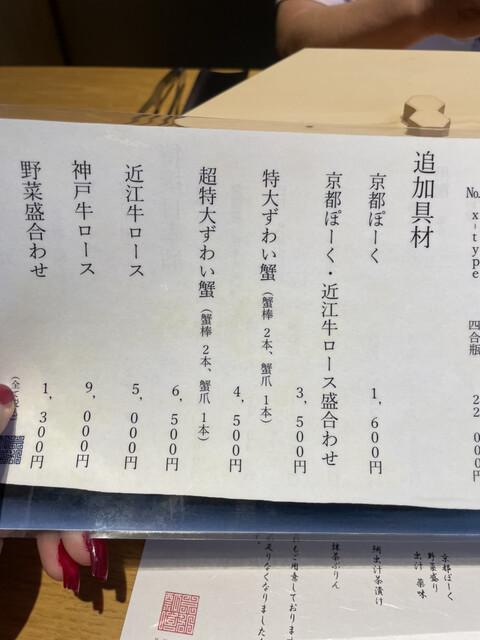 No. x-type 四合瓶 22,000円
追加具材
京都ぽーく 1,600円
京都ぽーく・近江牛ロース盛合わせ 3,500円
特大ずわい蟹（蟹棒 2本、蟹爪 1本） 4,500円
超特大ずわい蟹（蟹棒 2本、蟹爪 1本） 6,500円
近江牛ロース 5,000円
神戸牛ロース 9,000円
野菜盛合わせ 1,300円
京都ぽーく
野菜盛り
出汁 薬味
鯛出汁茶漬け
抹茶ぷりん
にもご用意しております
足りなくなりました